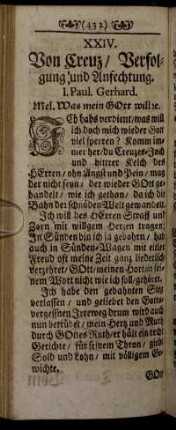 (432)
XXIV.
Von Creuz/ Verfol-
gung/und Anfechtung.
1. Paul. Gerhard.
Mel. Was mein GOtt will ꝛc.
ICh habs verdient/was will
ich doch mich wieder Gott
viel sperren? Komm im-
mer her/du Creuzes-Joch
und bittrer Kelch des
HErren/ ohn Angst und Pein/ mag
der nicht seyn/ der wieder GOtt ge-
handelt/ wie ich gethan/ da ich die
Bahn der schnöden Welt gewandelt.
Ich will des HErren Straff und
Zorn mit willgem Herzen tragen:
In Sünden bin ich ja gebohrn/ hab
auch in Sünden-Wagen mit eitler
Freud oft meine Zeit gantz liederlich
verzehret/ GOtt/ meinen Hort/in sei-
nem Wort nicht wie ich soll/gehöret.
Ich habe den gebahnten Steg
verlassen/ und geliebet den Gotts-
vergessnen Irreweg drum wird auch
nun betrübet/ mein Hertz und Muth
durch GOttes Ruth/er hält ein recht
Gerichte/ für seinem Thron/ giebt
Sold und Lohn/ mit völligem Ge-
wichte.
GOtt